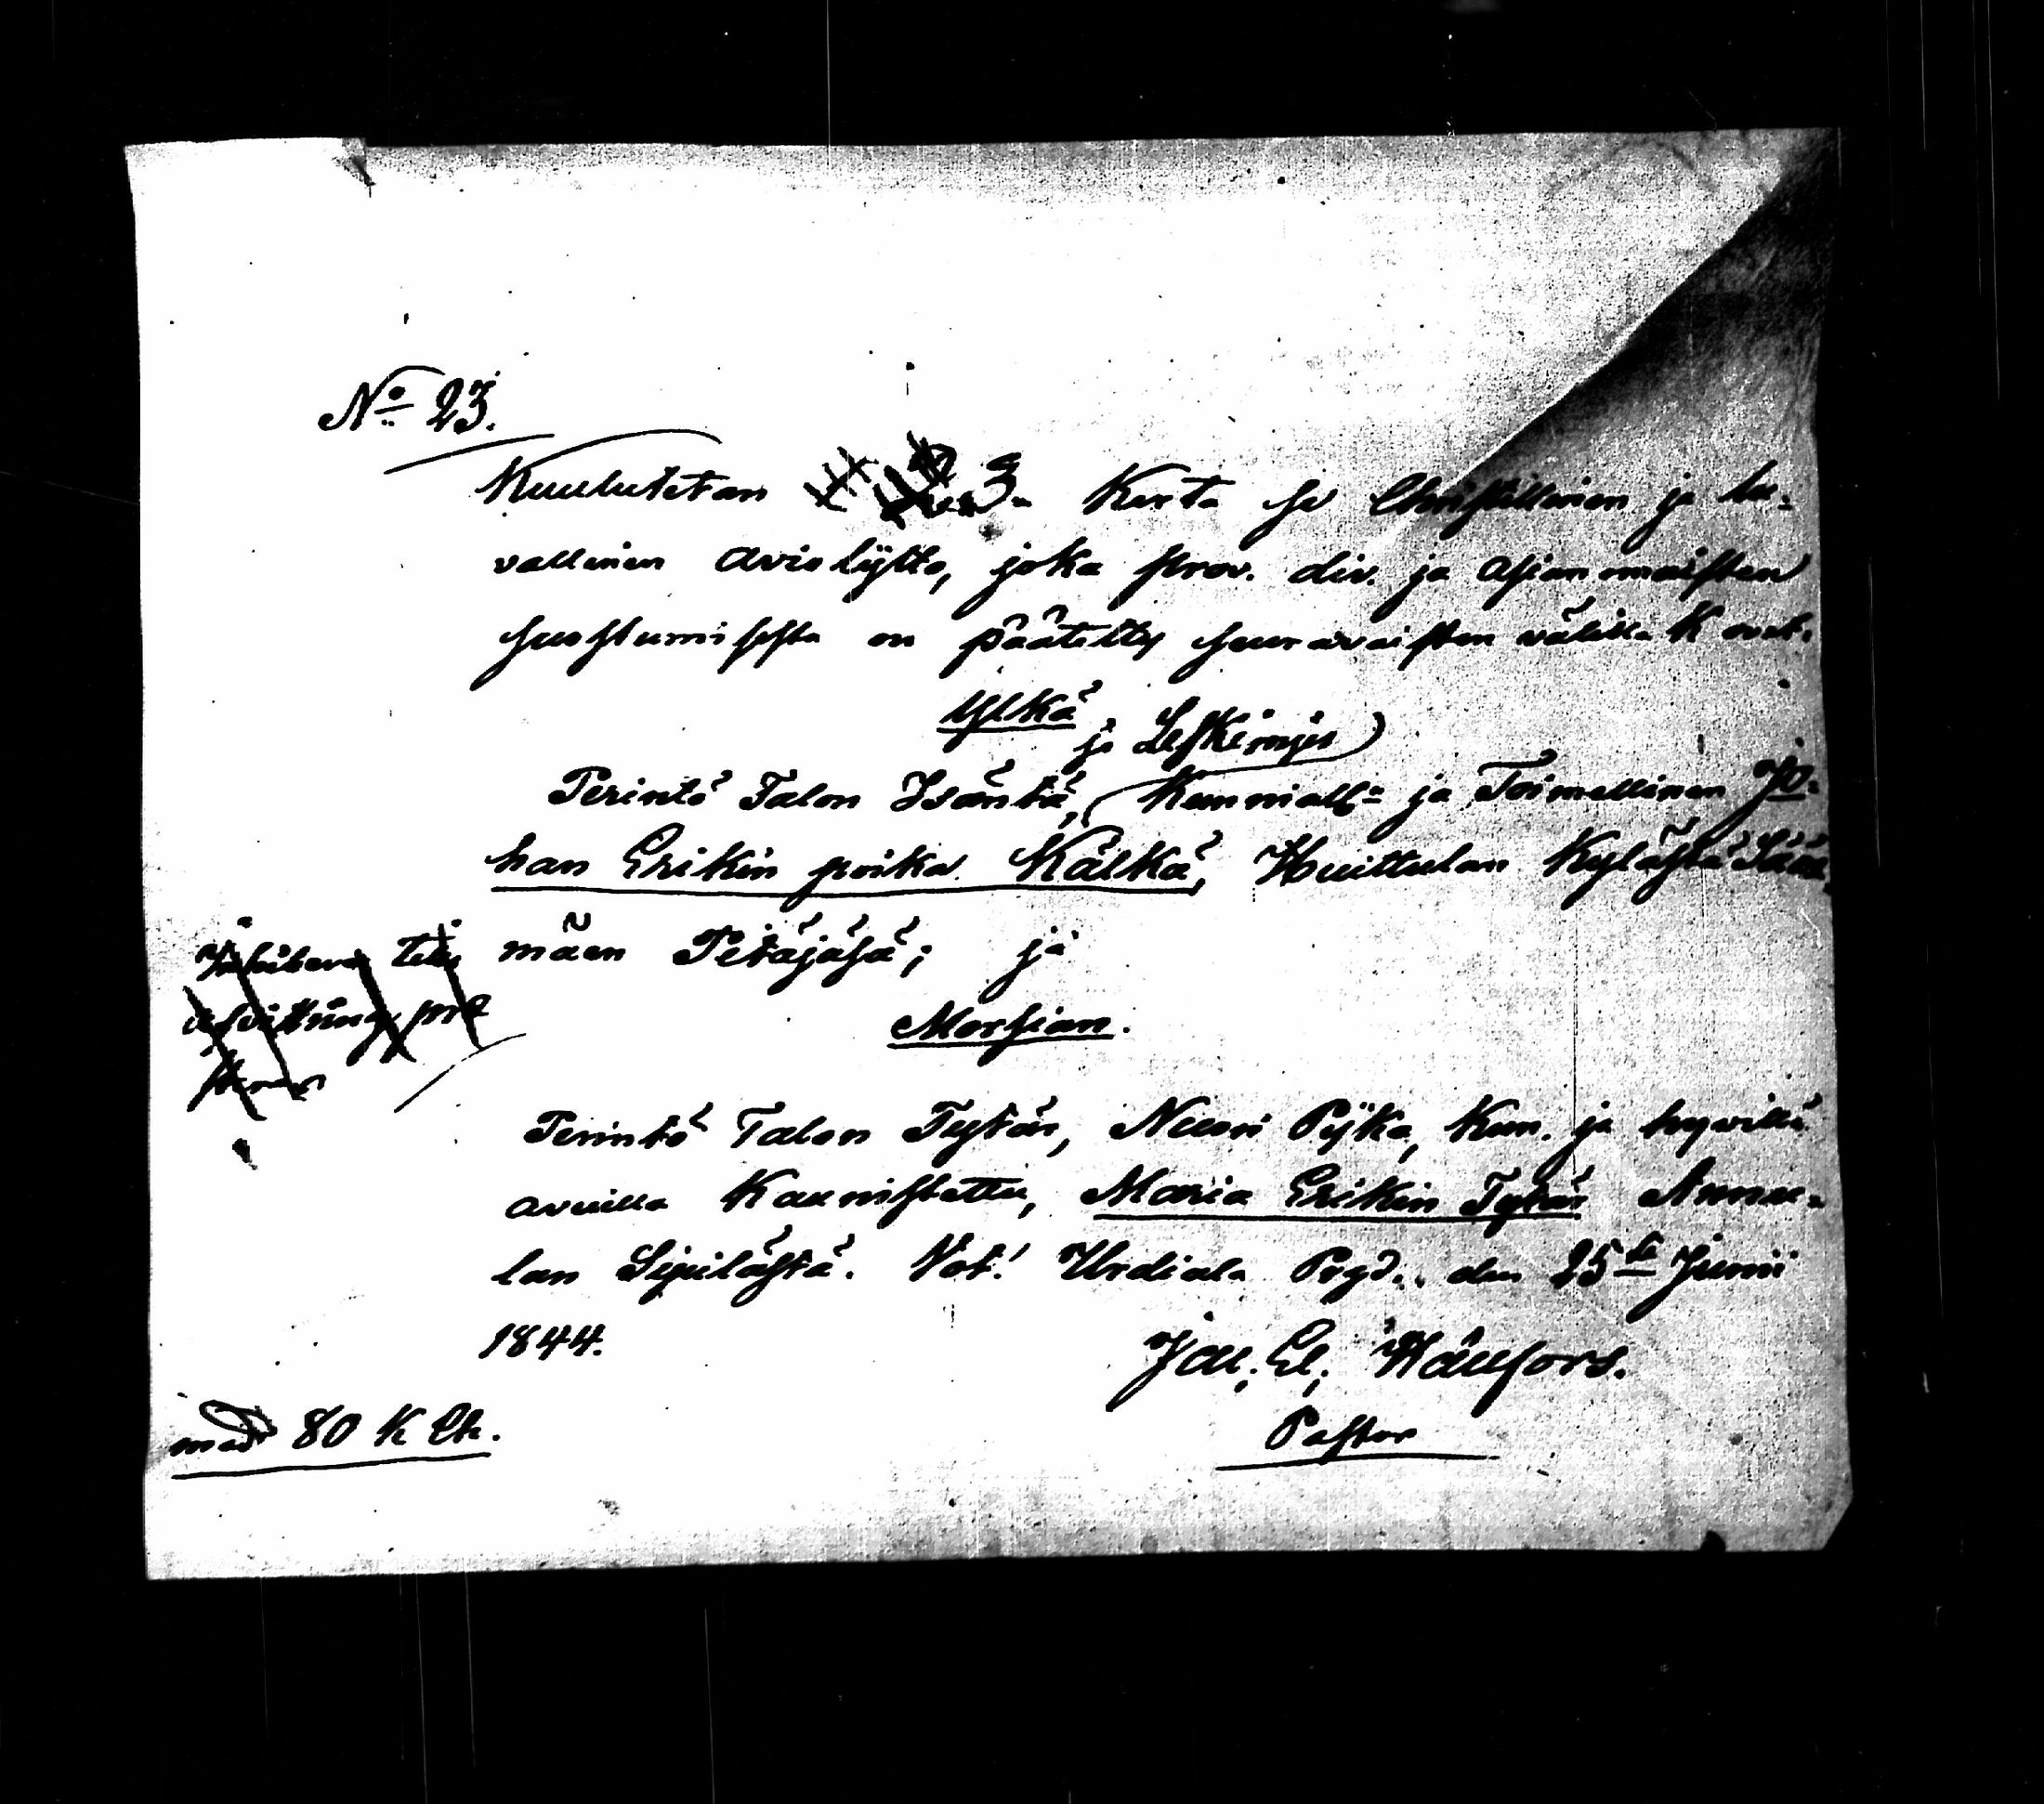 No 23.
Kuulutetan 3. Kerta se Christillinen ja lu-
vallinen Avioliÿtto, joka prov. div. ja Asianmaisten
suostumisesta on päätetty seuravaisten välillä K
Ylkä
ja Leskimies
Perintö Talon Isäntä, Kunniall:n ja Toimellinen Jo-
han Erikin poika Kälkä, Huittulan Kylästä Sääx-
mäen Pitäjäsä; ja
Morsian.
Perintö Talon Tytär, Nuori Pijka, Kun. ja hyvillä
avuilla Kaunistettu, Maria Erikin Tytär Annu-
lan Sipilästä. Not! Urdiala Prgd. den 25te Junii
1844.
Pastor
med 80 K